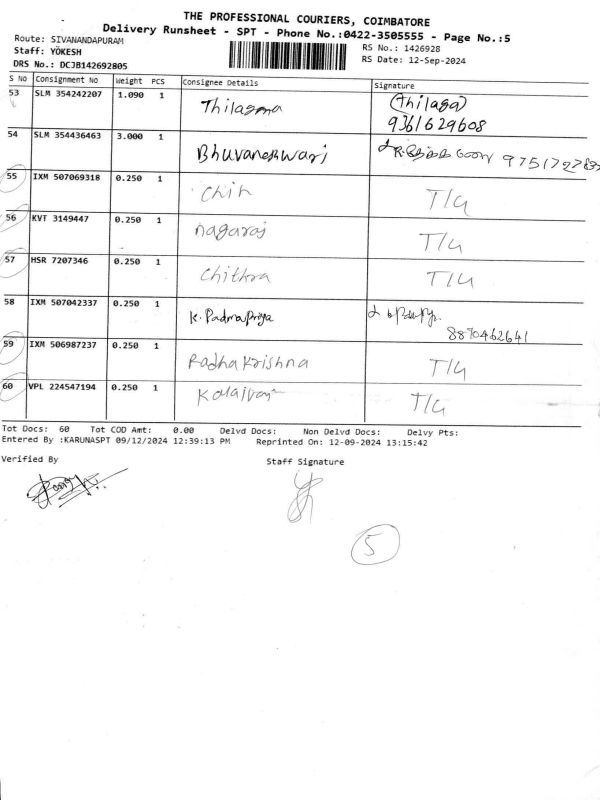 THE PROFESSIONAL COURIERS, COIMBATORE
Delivery Runsheet - SPT - Phone No.:0422-3505555 - Page No.:5
Route: SIVANANDAPURAM
RS No.: 1426928
Staff: YOKESH
RS Date: 12-Sep-2024
DRS No.: DCJB142692805
S No Consignment No Weight PCS Consignee Details Signature
53 SLM 354242207 1.090 1 Thilagma (Thilaga)
9361629608
54 SLM 354436463 3.000 1 Bhuvaneshwari
55 IXM 507069318 0.250 1 Chih T/G
56 KVT 3149447 0.250 1 nagaraj T/G
57 HSR 7207346 0.250 1 Chithra T/G
58 IXM 507042337 0.250 1 K. Padmapriya
8870462641
59 IXM 506987237 0.250 1 Radhakrishna T/G
60 VPL 224547194 0.250 1 T/G
Tot Docs: 60 Tot COD Amt: 0.00 Delvd Docs: Non Delvd Docs: Delvy Pts:
Entered By :KARUNASPT 09/12/2024 12:39:13 PM Reprinted On: 12-09-2024 13:15:42
Verified By Staff Signature
5